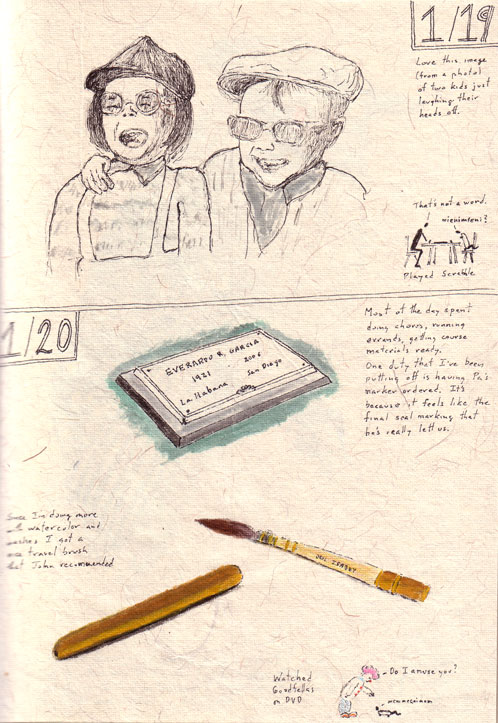 1/19
Love this image
(from a photo)
of two kids just
laughing their
heads off.
That's not a word.
Played Scrabble
1/20
Most of the day spent
doing chores, running
errands, getting course
materials ready.
One duty that I've been
putting off is having Pa's
marker ordered. It's
because it feels like the
final seal marking that
he's really left us.
EVERARDO R. GARCIA
1921 2006
La Habana San Diego
I'm doing more
watercolor and
washes I got a
travel brush
that John recommended
ISABEY
Watched
Goodfellas
on DVD
Do I amuse you?